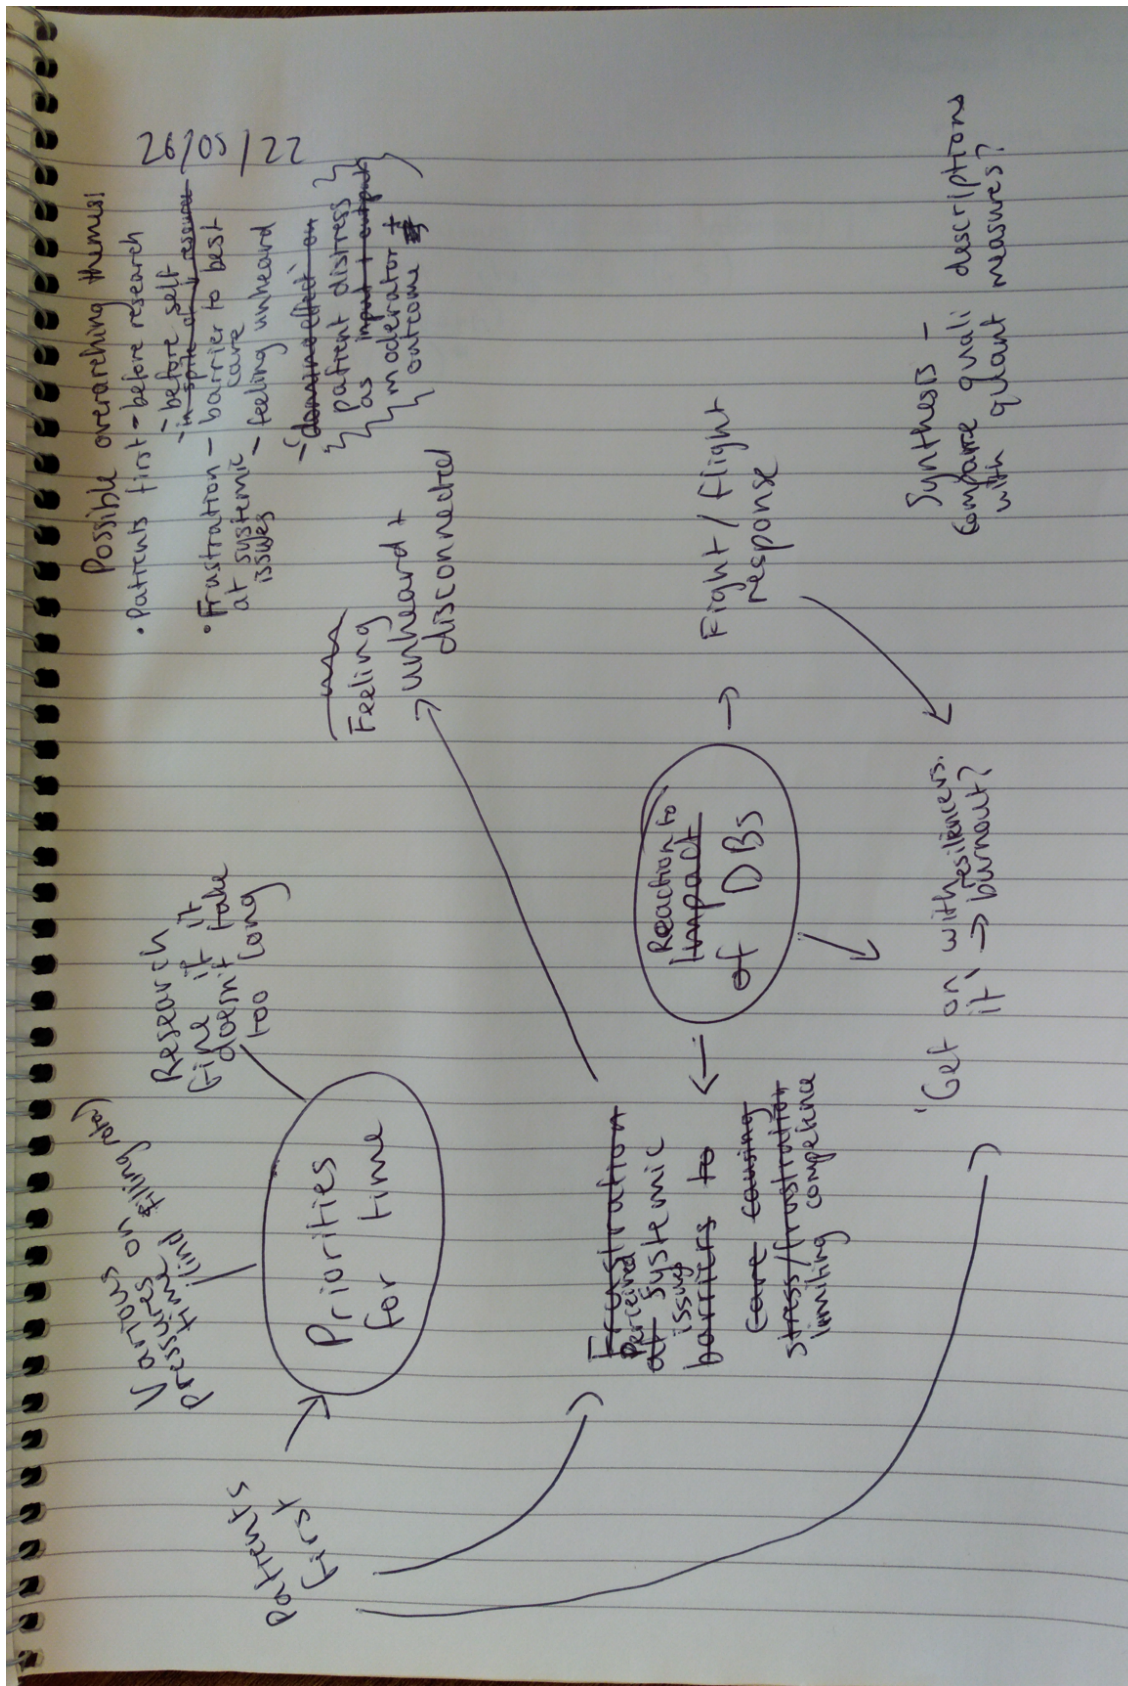 26/05/22
Possible overarching themes:
• Patients first - before research
- before self
- in spite of resource
• Frustration - barrier to best
at systemic care
issues - feeling unheard
- 'domino effect' on
patient distress
as input + output
moderator +
outcome
Various
pressures on
time (ind filling
Research
fine if it
doesn't take
too long
Feeling
unheard +
disconnected
Patients
first
Priorities
for time
Frustration
Perceived
at systemic
issues
barriers to
care causing
stress/frustration
limiting competence
Reaction to
Impact
of DBs
Fight / flight
response
'Get on with
it' → burnout?
Synthesis -
compare quali descriptions
with quant measures?